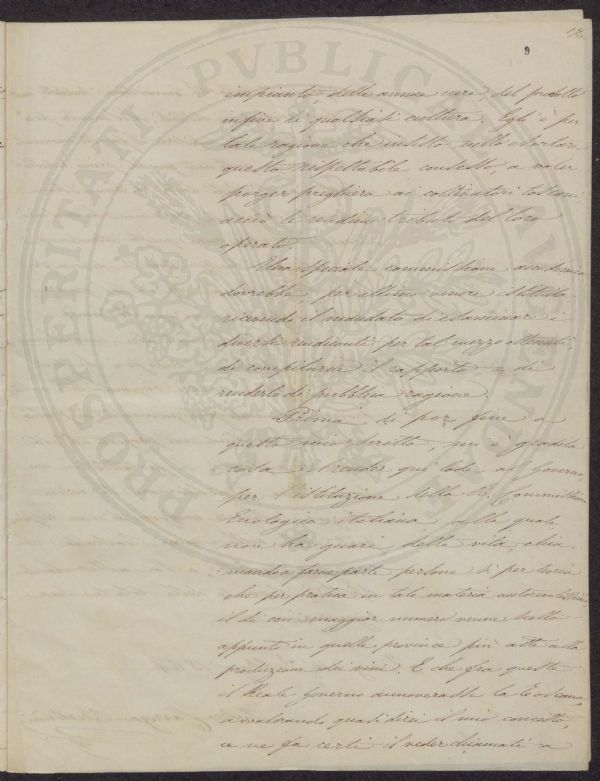 9
impianto, delle annue cure, del prodotto
infine di qualsiasi cultura. Egli è per
tale ragione che insisto nello esortare
questo rispettabile consesso, a voler
porger preghiera ai coltivatori toscani
acciò le rendino tributi del loro
operato.
Una speciale commissione accademica
dovrebbe per ultimo venire istituita
ricevendo il mandato di esaminare i
diversi rendiconti per tal mezzo ottenuti,
di compilarne il rapporto e di
renderlo di pubblica ragione.
Prima di por fine a
questo mio scritto, mi è gradita
cosa il render qui lode al Governo,
per l'istituzione della R. Commissione
Enologica italiana alla quale
non ha guari dette vita, chia-
mando a farne parte persone sì per teoria
che per pratica in tale materia autorevolissime
il di cui maggior numero venne scelto
appunto in quelle province più atte alla
produzione dei vini. E che fra queste
il Reale Governo annoverasse la Toscana,
avvalorando quasi direi il mio concetto,
ce ne fa certi il veder chiamati a
PROSPERITATI PVBLICAE AVGENDAE